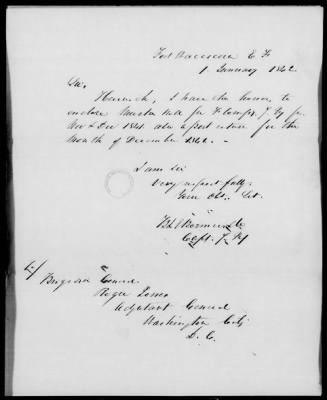 Fort Barrancas E. F.
1 January 1842
Sir,
Herewith, I have the honor, to
enclose Muster Roll for F. Comp. 7. Inf for
Nov & Dec 1841. also a post return for the
Month of December 1842. -
I am Sir
Very respectfully.
Your Obt. Svt.
Capt. 7. Inf
To/
Brigadier General
Roger Jones
Adjutant General
Washington City
D. C.